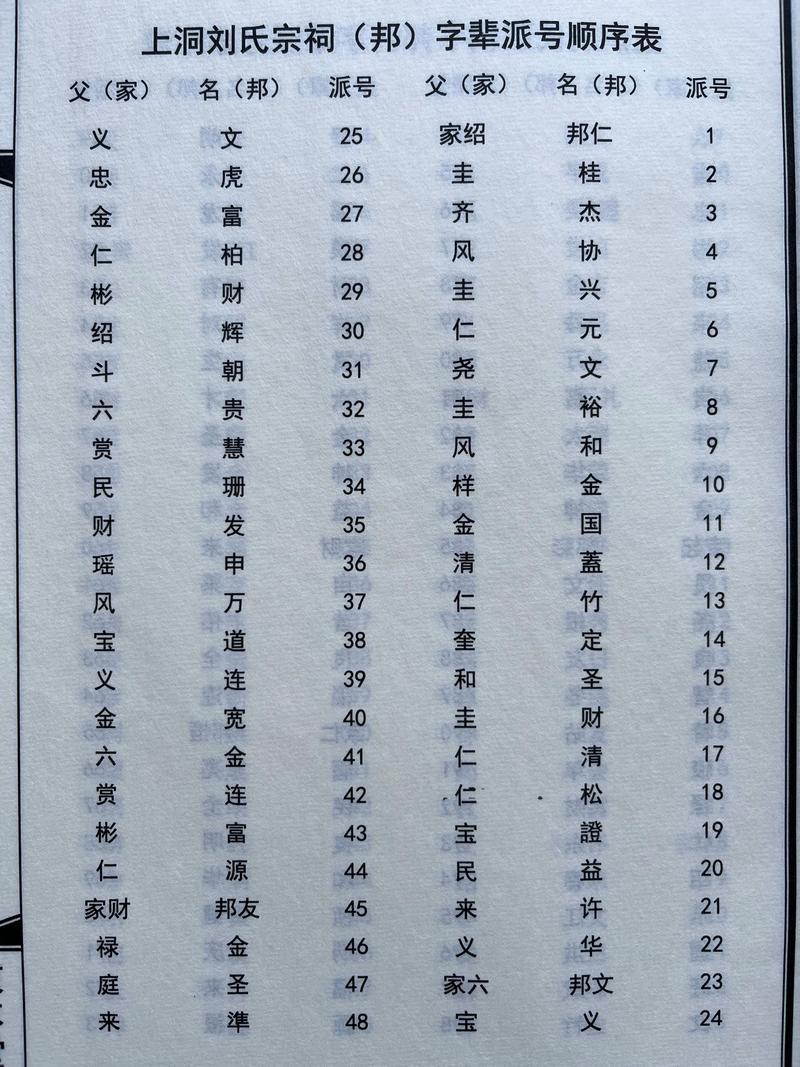 上洞刘氏宗祠（邦）字辈派号顺序表
父（家） 名（邦） 派号 父（家） 名（邦） 派号
义 文 25 家绍 邦仁 1
忠 虎 26 圭 桂 2
金 富 27 齐 杰 3
仁 柏 28 风 协 4
彬 财 29 圭 兴 5
绍 辉 30 仁 元 6
斗 朝 31 尧 文 7
六 贵 32 圭 裕 8
赏 慧 33 风 和 9
民 珊 34 样 金 10
财 发 35 金 国 11
瑶 申 36 清 蓋 12
风 万 37 仁 竹 13
宝 道 38 奎 定 14
义 连 39 和 圣 15
金 宽 40 圭 财 16
六 金 41 仁 清 17
赏 连 42 仁 松 18
彬 富 43 宝 證 19
仁 源 44 民 益 20
家财 邦友 45 来 许 21
禄 金 46 义 华 22
庭 圣 47 家六 邦文 23
来 準 48 宝 义 24